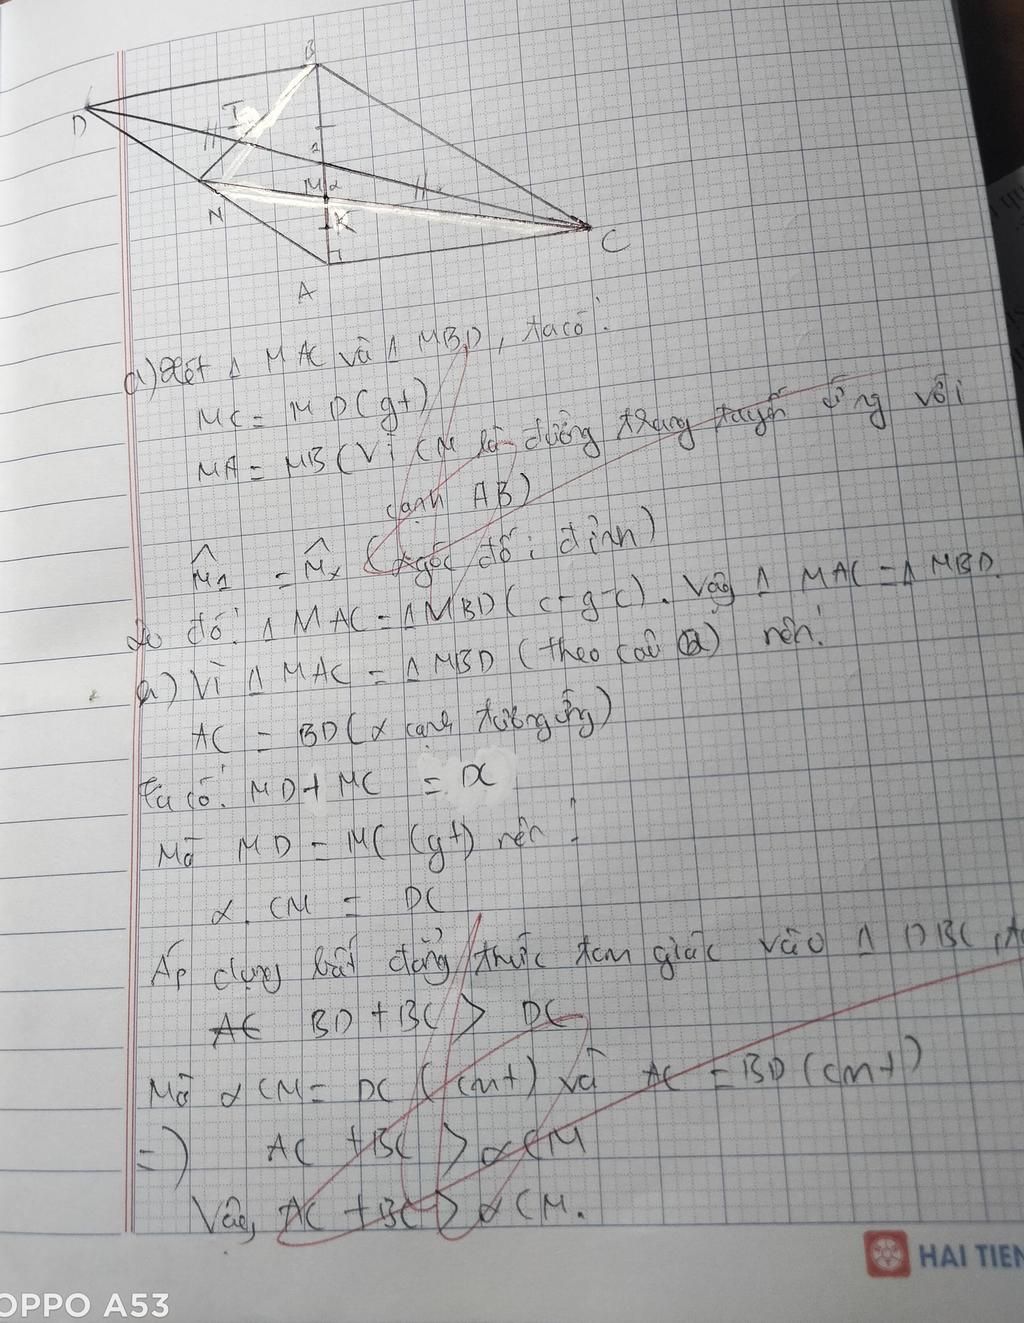 B
D
I
1
M 2
N
K
C
A
a) Xét Δ MAC và Δ MBD, ta có:
MC = MD (gt)
MA = MB (Vì CM là đường trung tuyến ứng với
cạnh AB)
M̂1 = M̂2 (2 góc đối đỉnh)
Do đó: Δ MAC = Δ MBD (c-g-c). Vậy Δ MAC = Δ MBD.
a) Vì Δ MAC = Δ MBD (theo câu a) nên:
AC = BD (2 cạnh tương ứng)
Ta có: MD + MC = DC
Mà MD = MC (gt) nên:
2. CM = DC
Áp dụng bất đẳng thức tam giác vào Δ DBC, ta
AC BD + BC > DC
Mà 2 CM = DC (cmt) và AC = BD (cmt)
=) AC + BC > 2CM
Vậy, AC + BC > 2 CM.
HAI TIEN
OPPO A53